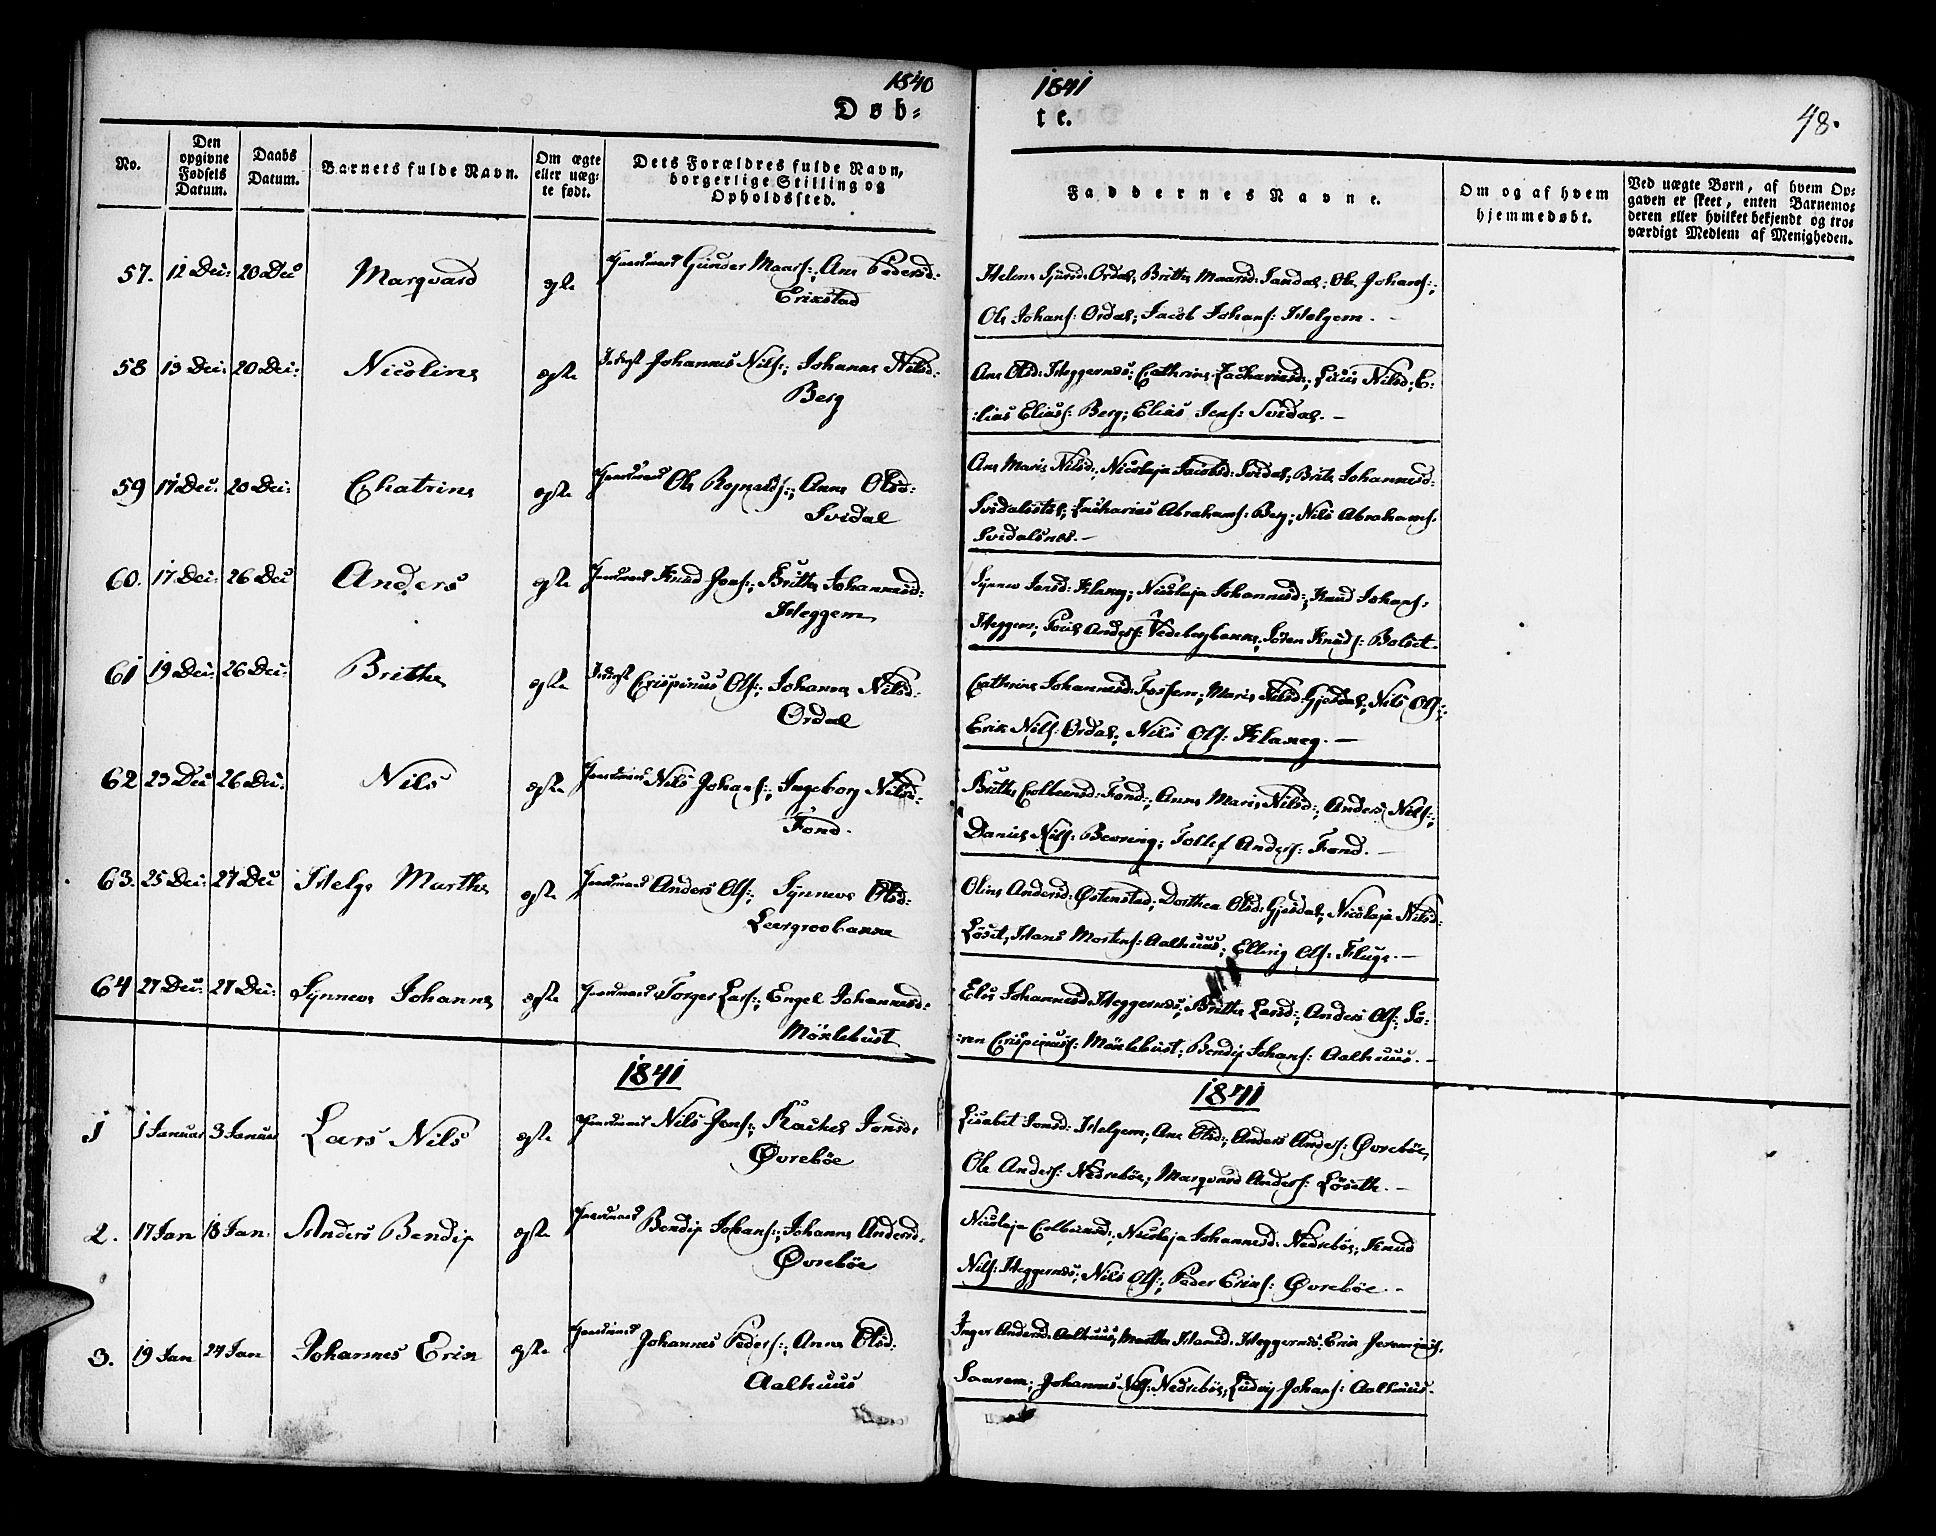 1840
Døb-
1841
te.
48.
No.
Den opgivne Fødsels Datum.
Daabs Datum.
Barnets fulde Navn.
Om ægte eller uæg-te født.
Dets Forældres fulde Navn, borgerlige Stilling og Opholdssted.
Faddernes Navne.
Om og af hvem hjemmedøbt.
Ved uægte Børn, af hvem Op-gaven er skeet, enten Barnemo-deren eller hvilket bekjendt og tro-værdigt Medlem af Menigheden.
57. 12 Dec: 20 Dec Marqvard egte Gaardmand Gunder Maars:, Ane Pedersd:
Erikstad
Helene Sjursd: Ordal, Brithe Maarsd: Sandal; Ole Johans:,
Ole Johans: Ordal; Jacob Johans: Helgem. -
58 13 Dec: 20 Dec: Nicoline egte Inderst Johannes Nils:, Johanne Nilsd:
Berg
Ane Olsd: Heggernes; Cathrine Zachariesd:, Nilsd; E-
lias Elias: Berg; Elias Jens: Svidal. -
59 17 Dec: 20 Dec: Chatrine egte Gaardmand Ole Rognalds:, Anne Olsd:
Svidal
Ane Marie Nilsd:, Nicolaja Jacobsd: Svidal; Brite Johannesd:
Zacharias Abrahams: Berg; Nils Abrahams:
Svidalsnes. -
60. 17 Dec: 26 Dec Anders egte Gaardmand Knud Jons:, Brithe Johannesd:
Heggem
Synneve Jonsd: Klaxeg; Nicolaja Johannesd:, Knud Johans:
Heggem; Anders: Vedelegbanne; Søren Knuds: Bolset.
61 19 Dec: 26 Dec: Brithe egte Inderst Crispinus Ols:, Johanne Nilsd:
Ordal
Cathrine Johannesd: Fossem; Marie Nilsd: Gjesdal; Nils Ols:,
Erik Nils: Ordal; Nils Ols: Klaxeg. -
62 23 Dec 26 Dec: Nils egte Gaardmand Nils Johans:, Ingeborg Nilsd:
Fond.
Brithe Colbensd: Fond:, Anne Marie Nilsd:, Anders Nils:,
Daniel Nils: Bevring; Tollef Anders: Fond. -
63. 25 Dec: 27 Dec Helge Marthe egte Gaardmand Anders Ols:, Synneve Olsd:
Leergrovbanne
Oline Andersd: Østenstad; Dorthea Olsd: Gjesdal; Nicolaja Nilsd:
Løset, Hans Mortens: Aalhuus; Elling Ols: Kluge. -
64 27 Dec: 27 Dec: Synneve Johanne egte Gaardmand Torger Lars:, Engel Johannesd:
Møklebust
Elis Johannesd: Heggernes; Brithe Larsd:, Anders Ols:, Sø-
ren Crispinus: Møklebust; Bendix Johans: Aalhuus. -
1841
1841
1 1 Januar 3 Januar Lars Nils egte Gaardmand Nils Jons:, Rachel Jonsd:
Øvrebøe
Lisabet Jonsd: Helgem; Ane Olsd:, Anders Anders: Øvrebøe,
Ole Anders: Nedrebøe; Marqvard Anders: Løseth. -
2. 17 Jan 18 Jan. Anders Bendix egte Gaardmand Bendix Johans:, Johanne Andersd:
Øvrebøe
Nicolaja Colbensd:, Nicolaja Johannesd: Nedrebøe; Knud
Nils: Heggernes; Nils Ols:, Peder Eriks: Øvrebøe. -
3. 19 Jan 24 Jan Johannes Erik egte Gaardmand Johannes Peders:, Anne Olsd:
Aalhuus
Inger Andersd: Aalhuus, Marthe Hansd: Heggernes; Erik Jeremias:
Saarem; Johannes Nils: Nedrebøe; Ludvig Johans: Aalhuus.